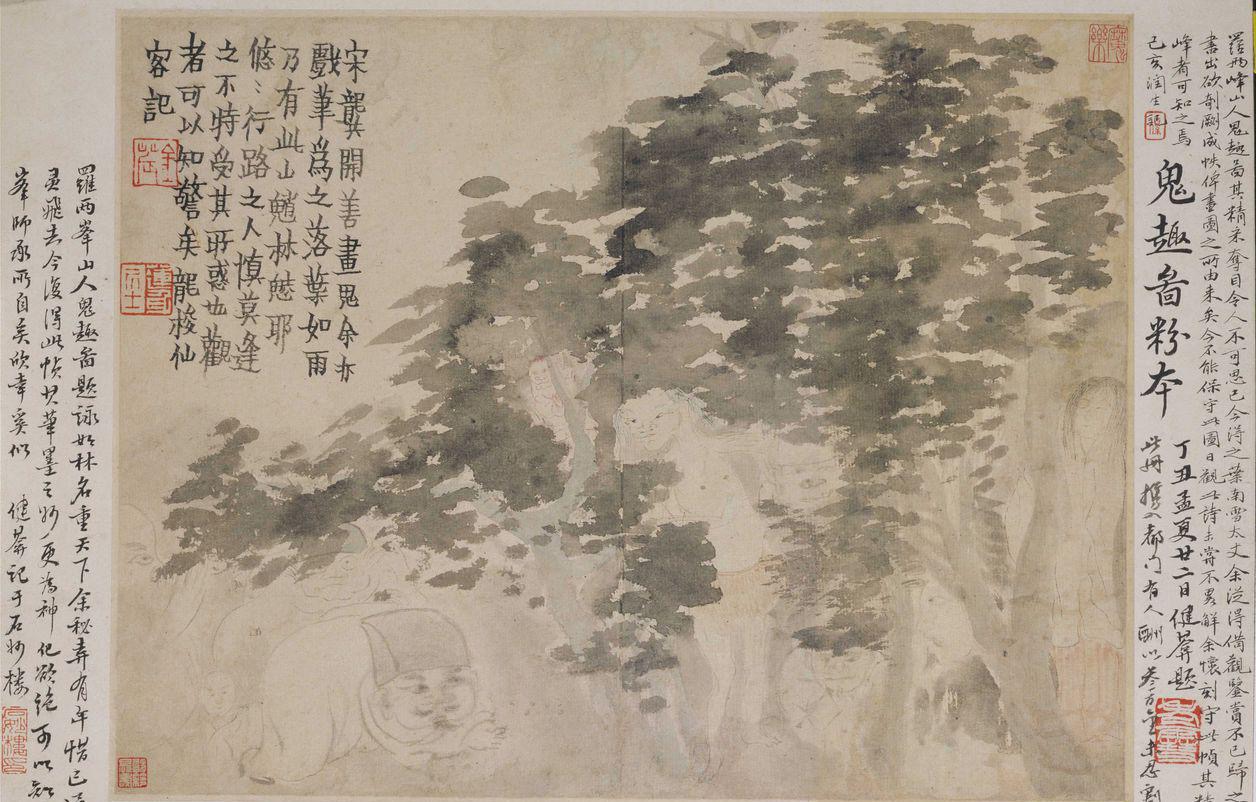 羅兩峰山人鬼趣啚其精采奪目令人不可思已今得之葉南雪太丈余從得備觀鑒賞不已歸之
書出欲剞劂成帙俾畫圖之所由来矣今不能保守此圖日觀此詩未嘗不畧解余懷刻守此幀其精
峰者可知之焉
己亥润生
鬼趣啚粉本
丁丑孟夏廿二日健菴題
此册携入都門有人酬以叁百金未忍割
宋龔開善畫鬼余亦
戲筆爲之落葉如雨
乃有此山魈林魋耶
悠〻行路之人慎莫逢
之不特受其所惑也觀
者可以知警矣龍梭仙
客記
羅兩峯山人鬼趣啚題詠如林名重天下余秘弆有年惜已
灵飛去今復得此幀其筆墨之妙更為神化欲絶可以知
峯師承所自矣欣幸奚似 健菴記于石妙楼